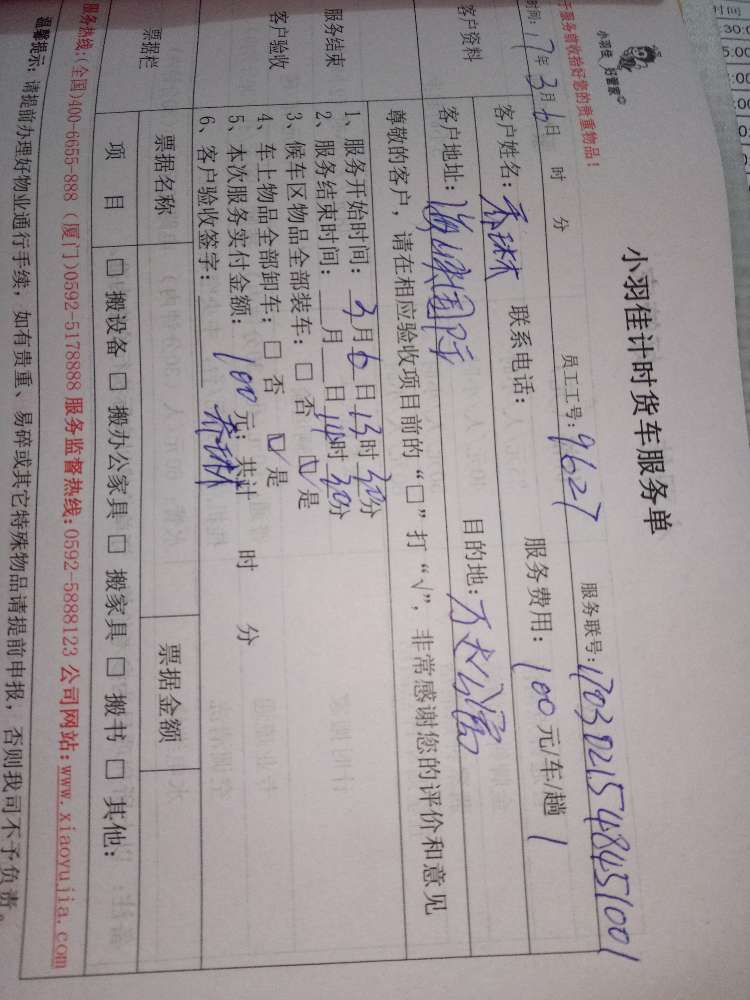 小羽佳 好管家
小羽佳计时货车服务单
于服务前收拾好您的贵重物品！
时间：17年3月6日 时 分 员工工号：9627 服务联号：1703021548451001
客户资料
客户姓名：乔琳 联系电话： 服务费用：100元/车/趟 1
客户地址： 国际 目的地： 公寓
尊敬的客户，请在相应验收项目前的“□”打“√”，非常感谢您的评价和意见
服务结束
客户验收
1、服务开始时间：3月6日13时30分
2、服务结束时间：__月__日14时30分
3、候车区物品全部装车：□ 否 ☑ 是
4、车上物品全部卸车：□ 否 ☑ 是
5、本次服务实付金额：100元；共计 时 分
6、客户验收签字：乔琳
票据栏
票据名称 票据金额
项 目 □ 搬设备 □ 搬办公家具 □ 搬家具 □ 搬书 □ 其他：
服务热线：(全国)400-6655-888 (厦门)0592-5178888 服务监督热线：0592-5888123 公司网站：www.xiaoyujia.com
温馨提示：请提前办理好物业通行手续，如有贵重、易碎或其它特殊物品请提前申报，否则我司不予负责。